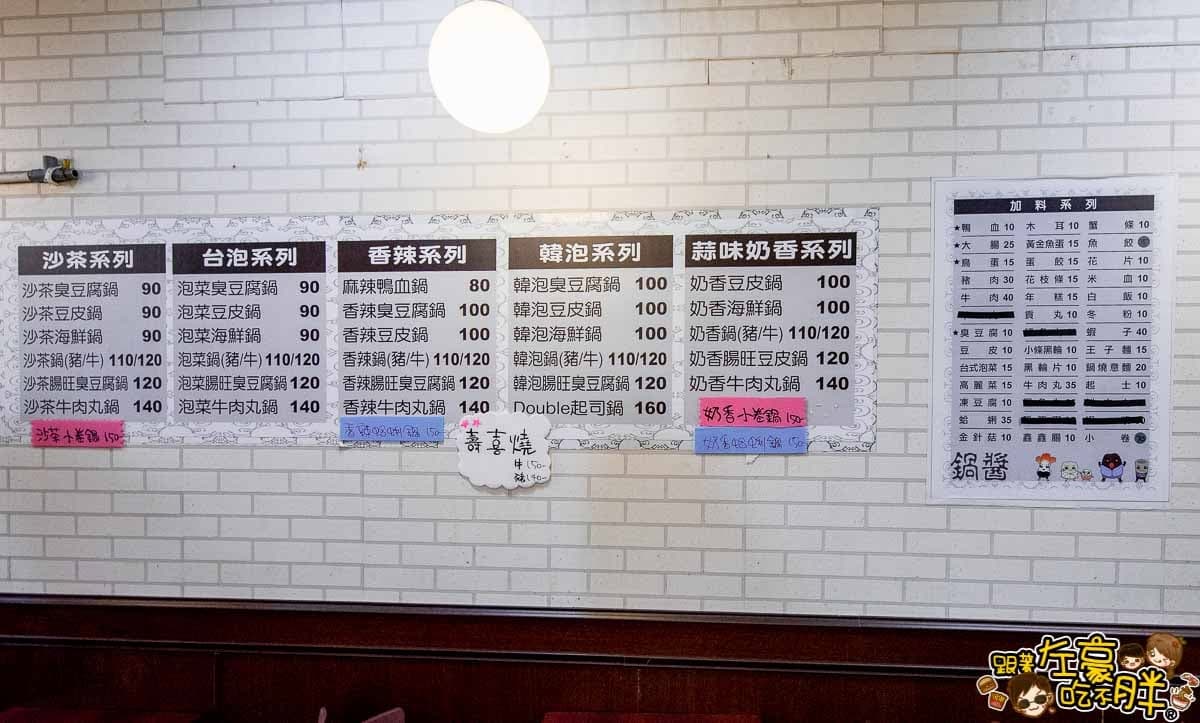 沙茶系列
沙茶臭豆腐鍋 90
沙茶豆皮鍋 90
沙茶海鮮鍋 90
沙茶鍋(豬/牛) 110/120
沙茶腸旺臭豆腐鍋 120
沙茶牛肉丸鍋 140
沙茶小卷鍋 150-
台泡系列
泡菜臭豆腐鍋 90
泡菜豆皮鍋 90
泡菜海鮮鍋 90
泡菜鍋(豬/牛) 110/120
泡菜腸旺臭豆腐鍋 120
泡菜牛肉丸鍋 140
香辣系列
麻辣鴨血鍋 80
香辣臭豆腐鍋 100
香辣豆皮鍋 100
香辣鍋(豬/牛) 110/120
香辣腸旺臭豆腐鍋 120
香辣牛肉丸鍋 140
香辣蛤蜊鍋 150-
壽喜燒
牛150-
豬140-
韓泡系列
韓泡臭豆腐鍋 100
韓泡豆皮鍋 100
韓泡海鮮鍋 100
韓泡鍋(豬/牛) 110/120
韓泡腸旺臭豆腐鍋 120
Double起司鍋 160
蒜味奶香系列
奶香豆皮鍋 100
奶香海鮮鍋 100
奶香鍋(豬/牛) 110/120
奶香腸旺豆皮鍋 120
奶香牛肉丸鍋 140
奶香小卷鍋 150-
奶香蛤蜊鍋 150-
加料系列
★鴨血 10 木耳 10 蟹條 10
★大腸 25 黃金魚蛋 15 魚餃
★鳥蛋 15 蛋餃 10 花片 10
豬肉 30 花枝條 15 米血 10
牛肉 40 年糕 15 白飯 10
貢丸 10 冬粉 10
★臭豆腐 10 蝦子 40
豆皮 10 小條黑輪 10 王子麵 15
台式泡菜 15 黑輪片 10 鍋燒意麵 20
高麗菜 15 牛肉丸 35 起士 10
凍豆腐 10
蛤蜊 35
金針菇 10 鑫鑫腸 10 小卷
鍋醬
跟著左豪吃不胖®